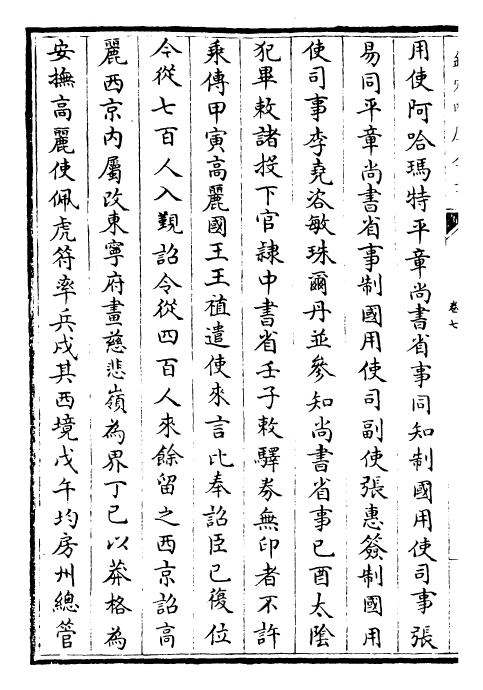 卷七
用使阿哈瑪特平章尚書省事同知制國用使司事張
易同平章尚書省事制國用使司副使張惠簽制國用
使司事李堯咨敏珠爾丹並參知尚書省事己酉太隂
犯畢敕諸投下官𨽻中書省壬子敕驛券無印者不許
乘傳甲寅高麗國王王禃遣使來言比奉詔臣已復位
今從七百人入覲詔令從四百人來餘留之西京詔高
麗西京内屬改東寧府畫慈悲嶺為界丁巳以莽格為
安撫高麗使佩虎符率兵戍其西境戊午均房州總管